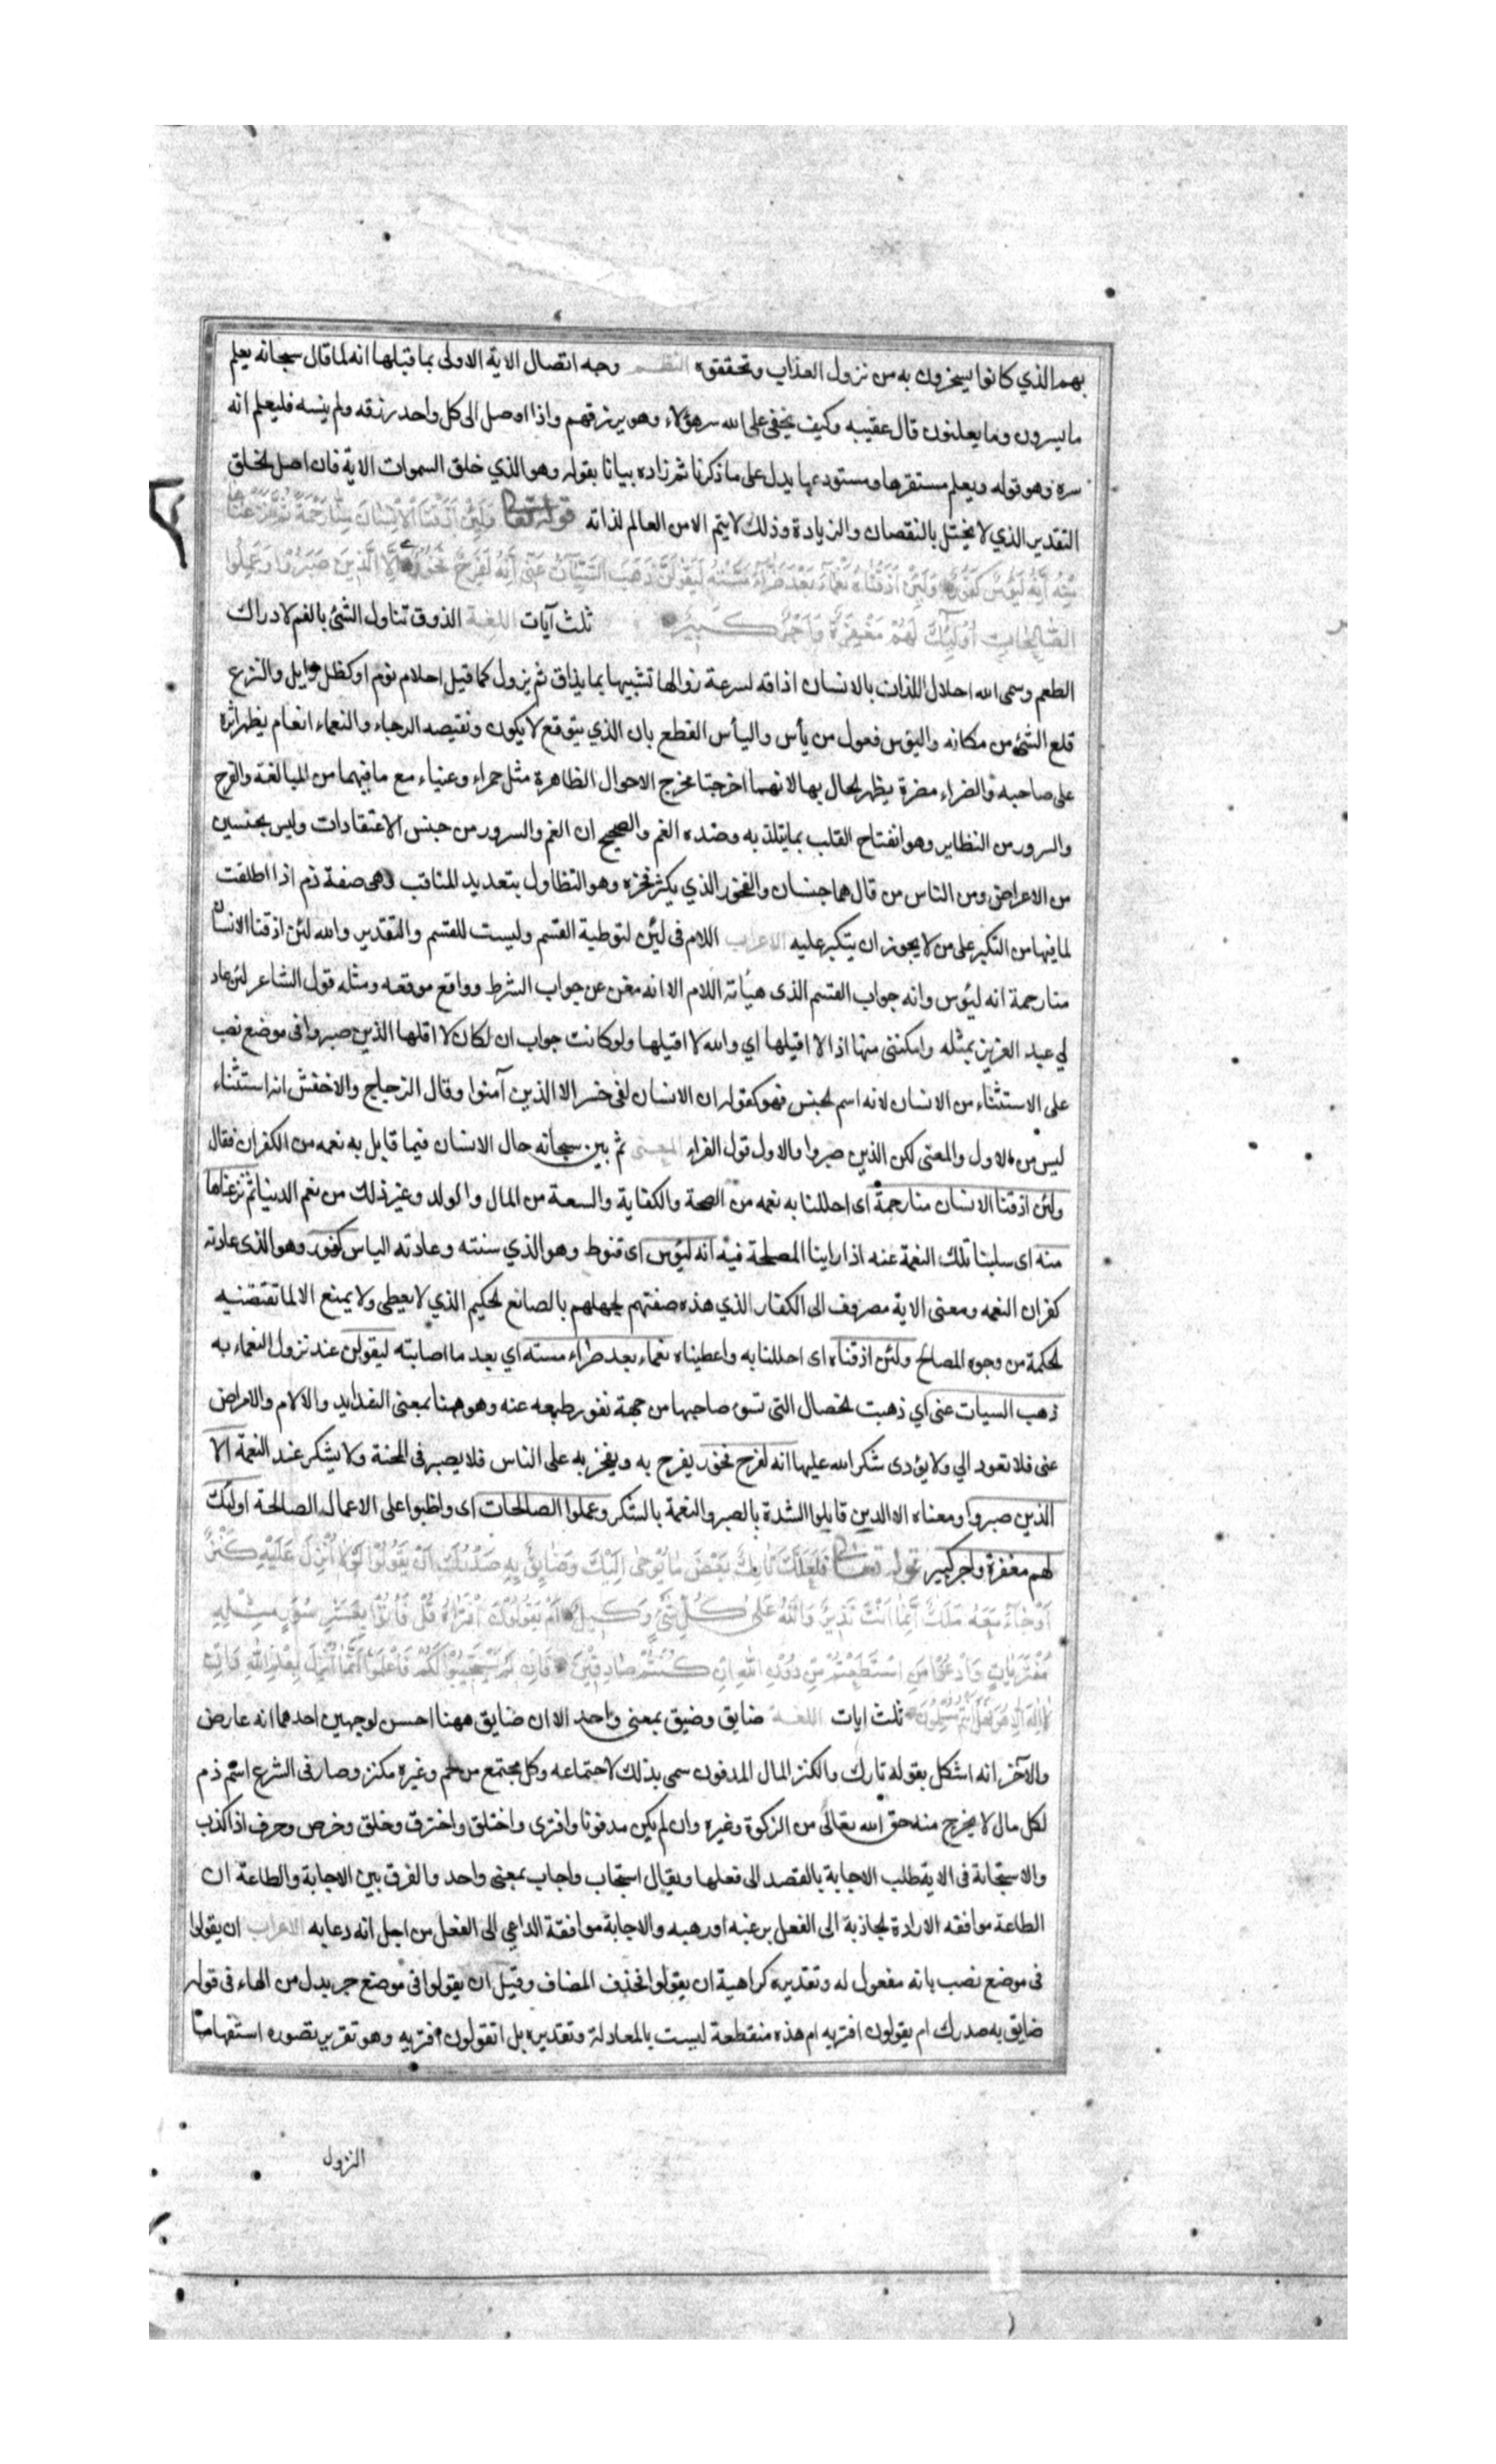 بهم الذي كانوا يسخرون به من نزول العذاب وتحققه النظم وجه اتصال الاية الاولى بما قبلها انه لما قال سبحانه يعلم
ما يسرون وما يعلنون قال عقيبه وكيف يخفى على الله سر هؤلاء وهو يرزقهم واذا اوصل الى كل واحد رزقه ولم ينسه فليعلم انه
سره وهو قوله ويعلم مستقرها ومستودعها يدل على ما ذكرنا ثم زاده بيانا بقوله وهو الذي خلق السموات الاية فان اصل الخلق
التقدير الذي لا يختل بالنقصان والزيادة وذلك لا يتم الا من العالم لذاته قوله تعالى وَلَئِنْ أَذَقْنَا الْإِنْسَانَ مِنَّا رَحْمَةً ثُمَّ نَزَعْنَاهَا
مِنْهُ إِنَّهُ لَيَؤُسٌ كَفُورٌ وَلَئِنْ أَذَقْنَاهُ نَعْمَاءَ بَعْدَ ضَرَّاءَ مَسَّتْهُ لَيَقُولَنَّ ذَهَبَ السَّيِّئَاتُ عَنِّي إِنَّهُ لَفَرِحٌ فَخُورٌ إِلَّا الَّذِينَ صَبَرُوا وَعَمِلُوا
الصَّالِحَاتِ أُولَئِكَ لَهُمْ مَغْفِرَةٌ وَأَجْرٌ كَبِيرٌ ثلث آيات اللغة الذوق تناول الشئ بالفم لادراك
الطعم وسمى الله احلال اللذات بالانسان اذاقه لسرعة زوالها تشبيها بما يذاق ثم يزول كما قيل احلام نوم او كظل زايل والنزع
قلع الشئ من مكانه واليؤس فعول من يأس واليأس القطع بان الذي يتوقع لا يكون ونقيضه الرجاء والنعماء انعام يظهر اثره
على صاحبه والضراء مضرة يظهر الحال بها لانهما اخرجتا مخرج الاحوال الظاهرة مثل حمراء وعيناء مع ما فيهما من المبالغة والفرح
والسرور من النظاير وهو انفتاح القلب بما يتلذ به وضده الغم والصحيح ان الغم والسرور من جنس الاعتقادات وليس بجنسين
من الاعراض ومن الناس من قال هما جنسان والفخور الذي يكثر فخره وهو التطاول بتعديد المناقب وهى صفة ذم اذا اطلقت
لما فيها من التكبر على من لا يجوز ان يتكبر عليه الاعراب اللام فى لئن لتوطية القسم وليست للقسم والتقدير والله لئن اذقنا الانسان
منا رحمة انه ليؤس وانه جواب القسم الذى هيأته اللام الا انه مغن عن جواب الشرط وواقع موقعه ومثله قول الشاعر لئن عاد
لي عبد العزيز بمثله وامكننى منها اذا لا اقيلها اي والله لا اقيلها ولو كانت جواب ان لكان لا اقلها الذين صبروا فى موضع نصب
على الاستثناء من الانسان لانه اسم الجنس فهو كقوله ان الانسان لفى خسر الا الذين آمنوا وقال الزجاج والاخفش انه استثناء
ليس من الاول والمعنى لكن الذين صبروا والاول قول الفراء المعنى ثم بين سبحانه حال الانسان فيما قابل به نعمه من الكفران فقال
ولئن اذقنا الانسان منا رحمة اى احللنا به نعمه من الصحة والكفاية والسعة من المال والولد وغير ذلك من نعم الدنيا ثم نزعناها
منه اى سلبنا تلك النعمة عنه اذا راينا المصلحة فيه انه ليؤس اى قنوط وهو الذي سنته وعادته الياس كفور وهو الذى عادته
كفران النعمه ومعنى الاية مصروف الى الكفار الذي هذه صفتهم لجهلهم بالصانع الحكيم الذي لا يعطى ولا يمنع الا لما تقتضيه
الحكمة من وجوه المصالح ولئن اذقناه اى احللنا به واعطيناه نعماء بعد ضراء مسته اي بعد ما اصابته ليقولن عند نزول النعماء به
ذهب السيات عنى اي ذهبت الخصال التى تسوء صاحبها من جهة نفور طبعه عنه وهو ههنا بمعنى الشدايد والالام والامراض
عنى فلا تعود الي ولا يؤدى شكر الله عليها انه لفرح فخور يفرح به ويفخر به على الناس فلا يصبر فى المحنة ولا يشكر عند النعمة الا
الذين صبروا ومعناه الا الذين قابلوا الشدة بالصبر والنعمة بالشكر وعملوا الصالحات اى واظبوا على الاعمال الصالحة اولئك
لهم مغفرة واجر كبير قوله تعالى فَلَعَلَّكَ تَارِكٌ بَعْضَ مَا يُوحَى إِلَيْكَ وَضَائِقٌ بِهِ صَدْرُكَ أَنْ يَقُولُوا لَوْلَا أُنْزِلَ عَلَيْهِ كَنْزٌ
أَوْ جَاءَ مَعَهُ مَلَكٌ إِنَّمَا أَنْتَ نَذِيرٌ وَاللَّهُ عَلَى كُلِّ شَيْءٍ وَكِيلٌ أَمْ يَقُولُونَ افْتَرَاهُ قُلْ فَأْتُوا بِعَشْرِ سُوَرٍ مِثْلِهِ
مُفْتَرَيَاتٍ وَادْعُوا مَنِ اسْتَطَعْتُمْ مِنْ دُونِ اللَّهِ إِنْ كُنْتُمْ صَادِقِينَ فَإِنْ لَمْ يَسْتَجِيبُوا لَكُمْ فَاعْلَمُوا أَنَّمَا أُنْزِلَ بِعِلْمِ اللَّهِ وَأَنْ
لَا إِلَهَ إِلَّا هُوَ فَهَلْ أَنْتُمْ مُسْلِمُونَ ثلث ايات اللغة ضايق وضيق بمعنى واحد الا ان ضايق ههنا احسن لوجهين احدهما انه عارض
والآخر انه اشكل بقوله تارك والكنز المال المدفون سمى بذلك لاجتماعه وكل مجتمع من لحم وغيره مكنز وصار فى الشرع اسم ذم
لكل مال لا يخرج منه حق الله تعالى من الزكوة وغيره وان لم يكن مدفونا وافترى واختلق واخترق وخلق وخرص وخرف اذا كذب
والاستجابة فى الاية طلب الاجابة بالقصد الى فعلها ويقال استجاب واجاب بمعنى واحد والفرق بين الاجابة والطاعة ان
الطاعة موافقه الارادة الجاذبة الى الفعل برغبه او رهبه والاجابة موافقة الداعي الى الفعل من اجل انه دعا به الاعراب ان يقولوا
فى موضع نصب بانه مفعول له وتقديره كراهية ان يقولوا فحذف المضاف وقيل ان يقولوا فى موضع جر بدل من الهاء فى قوله
ضايق به صدرك ام يقولون افتريه ام هذه منقطعة ليست بالمعادلة وتقديره بل اتقولون افتريه وهو تقرير بصوره استفهام
النزول